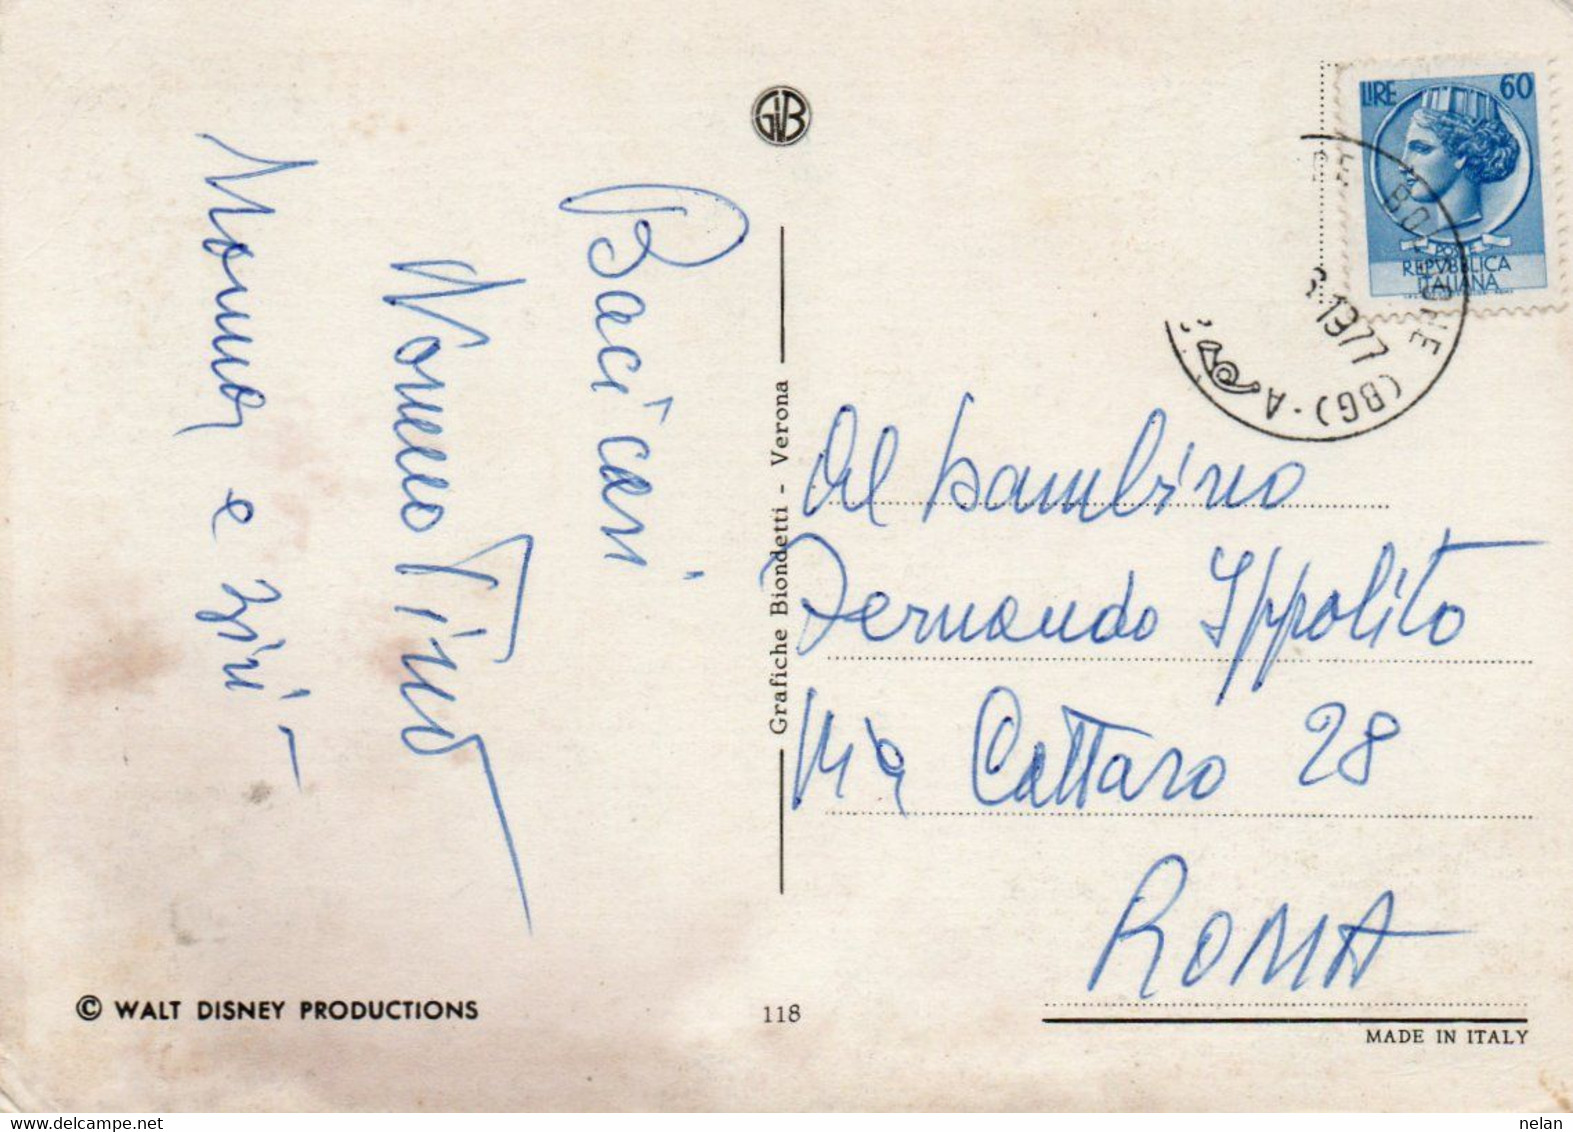 Baci cari
Nonno Tino
Nonna e zii
GB
LIRE 60
POSTE
REPVBBLICA
ITALIANA
1977
(BG) - A
Al bambino
Fernando Ippolito
Via Cattaro 28
ROMA
Grafiche Biondetti - Verona
© WALT DISNEY PRODUCTIONS
118
MADE IN ITALY
www.delcampe.net
nelan